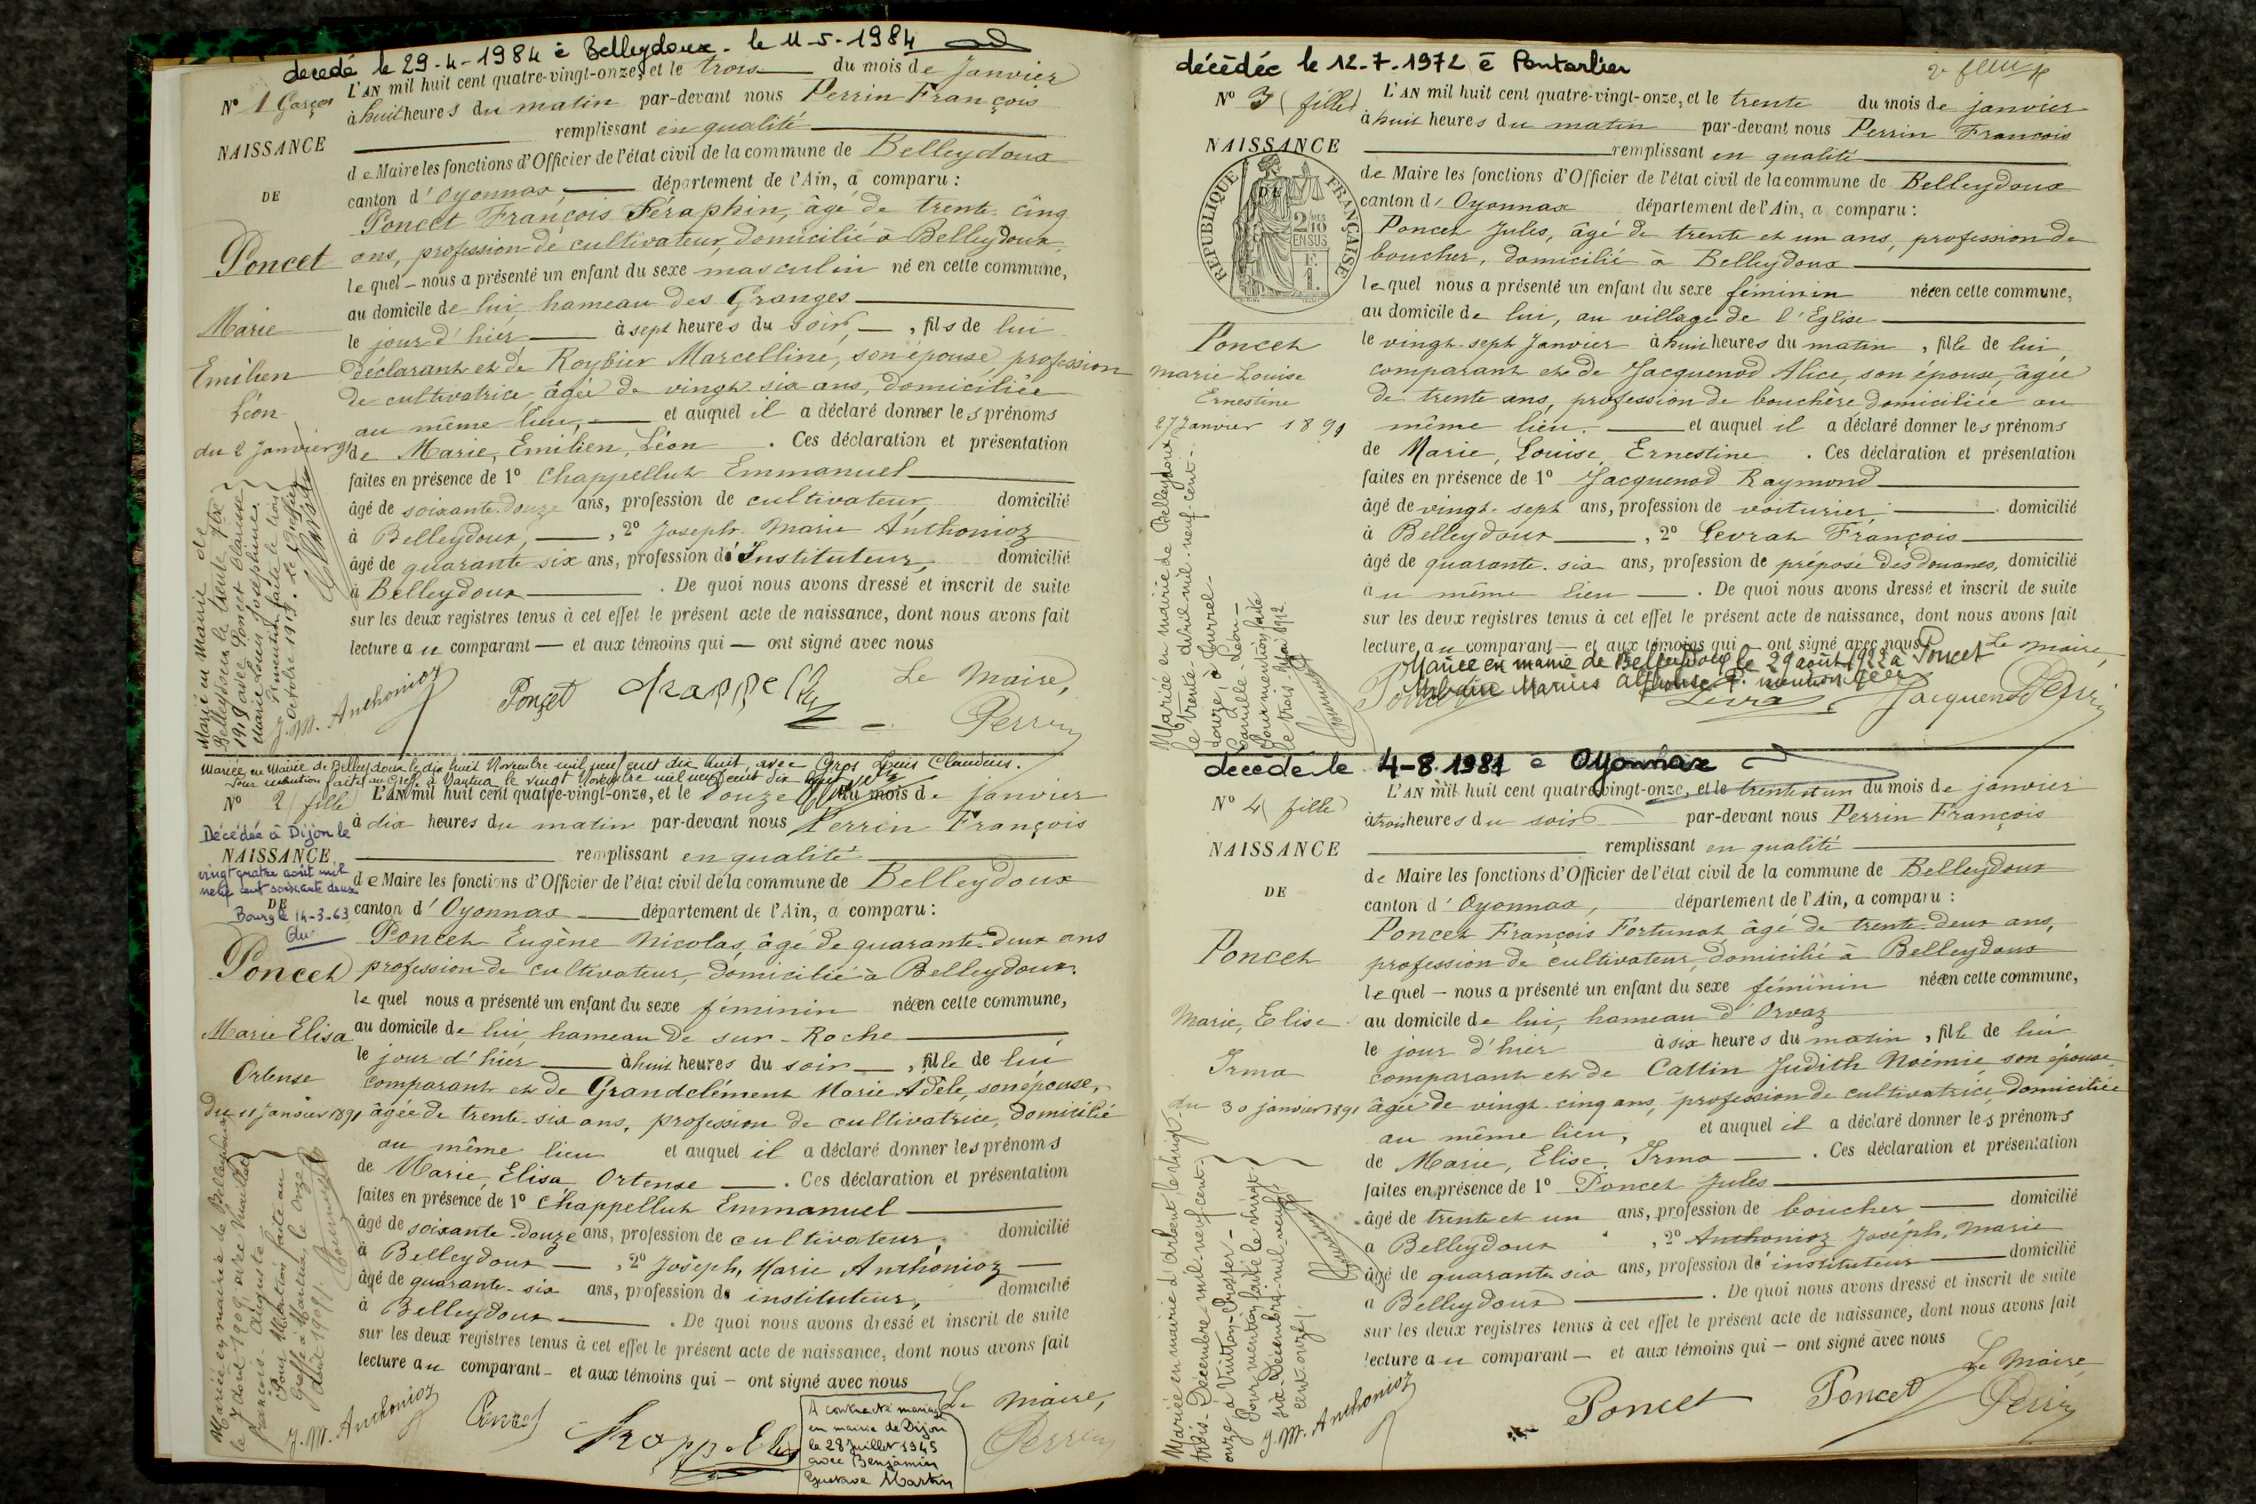 décédé le 29-4-1984 à Belleydoux - le 11-5-1984
N° 1 Garçon
NAISSANCE
DE
Poncet
Marie
Emilien
Léon
du 2 Janvier 91
L'AN mil huit cent quatre-vingt-onze, et le trois du mois de Janvier
à huit heures du matin par-devant nous Perrin François
remplissant en qualité
de Maire les fonctions d'Officier de l'état civil de la commune de Belleydoux
canton d'Oyonnax, département de l'Ain, a comparu :
Poncet François Séraphin, âgé de trente-cinq
ans, profession de cultivateur, domicilié à Belleydoux,
lequel – nous a présenté un enfant du sexe masculin né en cette commune,
au domicile de lui, hameau des Granges
le jour d'hier à sept heures du soir, , fils de lui
déclarant et de Roybier Marcelline, son épouse profession
de cultivatrice âgée de vingt six ans, domiciliée
au même lieu, et auquel il a déclaré donner les prénoms
de Marie, Emilien, Léon . Ces déclaration et présentation
faites en présence de 1° Chappellut Emmanuel
âgé de soixante-douze ans, profession de cultivateur, domicilié
à Belleydoux, , 2° Joseph Marie Anthonioz
âgé de quarante six ans, profession de Instituteur, domicilié
à Belleydoux . De quoi nous avons dressé et inscrit de suite
sur les deux registres tenus à cet effet le présent acte de naissance, dont nous avons fait
lecture au comparant — et aux témoins qui — ont signé avec nous
Le Maire,
J. M. Anthonioz Poncet Chappellut Perrin
Marié en Mairie de
Belleydoux le trente
1919 avec Poncet Clarisse
Marie Louise Joséphine.
Pr mention faite le trois
octobre 1919. Le Greffier
Mariée en Mairie de Belleydoux le dix huit Novembre mil neuf cent dix huit, avec Gros Louis Claudius.
Pour mention faite au Greffe à Nantua le vingt Novembre mil neuf cent dix huit
N° 2 fille
Décédée à Dijon le
NAISSANCE
vingt quatre août mil
neuf cent soixante deux
DE
Bourg le 14-3-63
Poncet
Marie Elisa
Ortense
du 11 Janvier 1891
L'AN mil huit cent quatre-vingt-onze, et le douze du mois de janvier
à dix heures du matin par-devant nous Perrin François
remplissant en qualité
de Maire les fonctions d'Officier de l'état civil de la commune de Belleydoux
canton d'Oyonnax département de l'Ain, a comparu :
Poncet Eugène Nicolas, âgé de quarante-deux ans
profession de cultivateur, domicilié à Belleydoux.
lequel nous a présenté un enfant du sexe féminin née en cette commune,
au domicile de lui, hameau de sur-Roche
le jour d'hier à huit heures du soir , fille de lui
comparant et de Grandclément Marie Adèle, son épouse,
âgée de trente-six ans, profession de cultivatrice, domicilié
au même lieu et auquel il a déclaré donner les prénoms
de Marie, Elisa Ortense . Ces déclaration et présentation
faites en présence de 1° Chappellut Emmanuel
âgé de soixante-douze ans, profession de cultivateur, domicilié
à Belleydoux , 2° Joseph, Marie Anthonioz
âgé de quarante-six ans, profession de instituteur, domicilié
à Belleydoux . De quoi nous avons dressé et inscrit de suite
sur les deux registres tenus à cet effet le présent acte de naissance, dont nous avons fait
lecture au comparant – et aux témoins qui – ont signé avec nous
Le Maire,
J. M. Anthonioz Poncet Chappellut Perrin
A contracté mariage
en mairie de Dijon
le 28 Juillet 1945
avec Benjamin
Gustave Martin
Mariée en mairie de Belleydoux
le 7 Août 1909, avec Maillet
François-Auguste
Pour Mention faite au
Greffe à Nantua, le onze
Août 1909.
décédée le 12.7.1972 à Pontarlier
2e feuillet
N° 3 (fille)
NAISSANCE
DE
RÉPUBLIQUE FRANÇAISE
2/10 EN SUS
F.
1.
Poncet
Marie Louise
Ernestine
27 Janvier 1891
L'AN mil huit cent quatre-vingt-onze, et le trente du mois de janvier
à huit heures du matin par-devant nous Perrin François
remplissant en qualité
de Maire les fonctions d'Officier de l'état civil de la commune de Belleydoux
canton d'Oyonnax département de l'Ain, a comparu :
Poncet Jules, âgé de trente et un ans, profession de
boucher, domicilié à Belleydoux
lequel nous a présenté un enfant du sexe féminin née en cette commune,
au domicile de lui, au village de l'Eglise
le vingt-sept Janvier à huit heures du matin , fille de lui
comparant et de Jacquenod Alice, son épouse, âgée
de trente ans, profession de bouchère domiciliée au
même lieu. et auquel il a déclaré donner les prénoms
de Marie, Louise, Ernestine . Ces déclaration et présentation
faites en présence de 1° Jacquenod Raymond
âgé de vingt-sept ans, profession de voiturier domicilié
à Belleydoux , 2° Levrat François
âgé de quarante-six ans, profession de préposé des douanes, domicilié
au même lieu . De quoi nous avons dressé et inscrit de suite
sur les deux registres tenus à cet effet le présent acte de naissance, dont nous avons fait
lecture au comparant — et aux témoins qui — ont signé avec nous
Le Maire,
Mariée en mairie de Belleydoux le 29 août 1922 à Poncet
Marius Alphonse. Pr mention
Poncet Levrat Jacquenod Perrin
Mariée en mairie de Belleydoux
le trente-avril-mil-neuf-cent-
douze, à
Camille-Léon-
Pour mention faite
le trois-Mai 1912
décédée le 4-8-1981 à Oyonnax
N° 4 (fille)
NAISSANCE
DE
Poncet
Marie, Elise
Irma
du 30 janvier 1891
L'AN mil huit cent quatre-vingt-onze, et le trente et un du mois de janvier
à trois heures du soir par-devant nous Perrin François
remplissant en qualité
de Maire les fonctions d'Officier de l'état civil de la commune de Belleydoux
canton d'Oyonnax, département de l'Ain, a comparu :
Poncet François Fortunat âgé de trente-deux ans,
profession de cultivateur, domicilié à Belleydoux
lequel – nous a présenté un enfant du sexe féminin née en cette commune,
au domicile de lui, hameau d'Orvaz
le jour d'hier à six heures du matin , fille de lui
comparant et de Cattin Judith Noémie son épouse
âgée de vingt-cinq ans, profession de cultivatrice domiciliée
au même lieu, et auquel il a déclaré donner les prénoms
de Marie, Elise, Irma . Ces déclaration et présentation
faites en présence de 1° Poncet Jules
âgé de trente et un ans, profession de boucher domicilié
à Belleydoux , 2° Anthonioz Joseph, Marie
âgé de quarante six ans, profession de instituteur domicilié
à Belleydoux . De quoi nous avons dressé et inscrit de suite
sur les deux registres tenus à cet effet le présent acte de naissance, dont nous avons fait
lecture au comparant — et aux témoins qui – ont signé avec nous
Le Maire
J. M. Anthonioz Poncet Poncet Perrin
Mariée en mairie d'Arbent, le vingt
trois-Décembre-mil-neuf-cent-
onze à Vuitton-Prosper-
Pour mention faite le vingt
six-Décembre-mil-neuf-
cent-onze/.